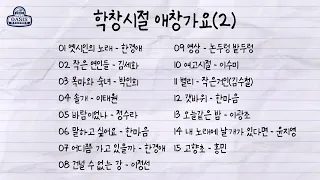 OASIS
학창시절 애창가요(2)
01 옛시인의 노래 - 한경애
02 작은 연인들 - 김세화
03 목마와 숙녀 - 박인희
04 솔개 - 이태원
05 바람이었나 - 정수라
06 말하고 싶어요 - 한마음
07 어디쯤 가고 있을까 - 한경애
08 건널 수 없는 강 - 이정선
09 영상 - 논두렁 밭두렁
10 여고시절 - 이수미
11 젤리 - 작은거인(김수철)
12 갯바위 - 한마음
13 오늘같은 밤 - 이광조
14 내 노래에 날개가 있다면 - 윤지영
15 고향초 - 홍민